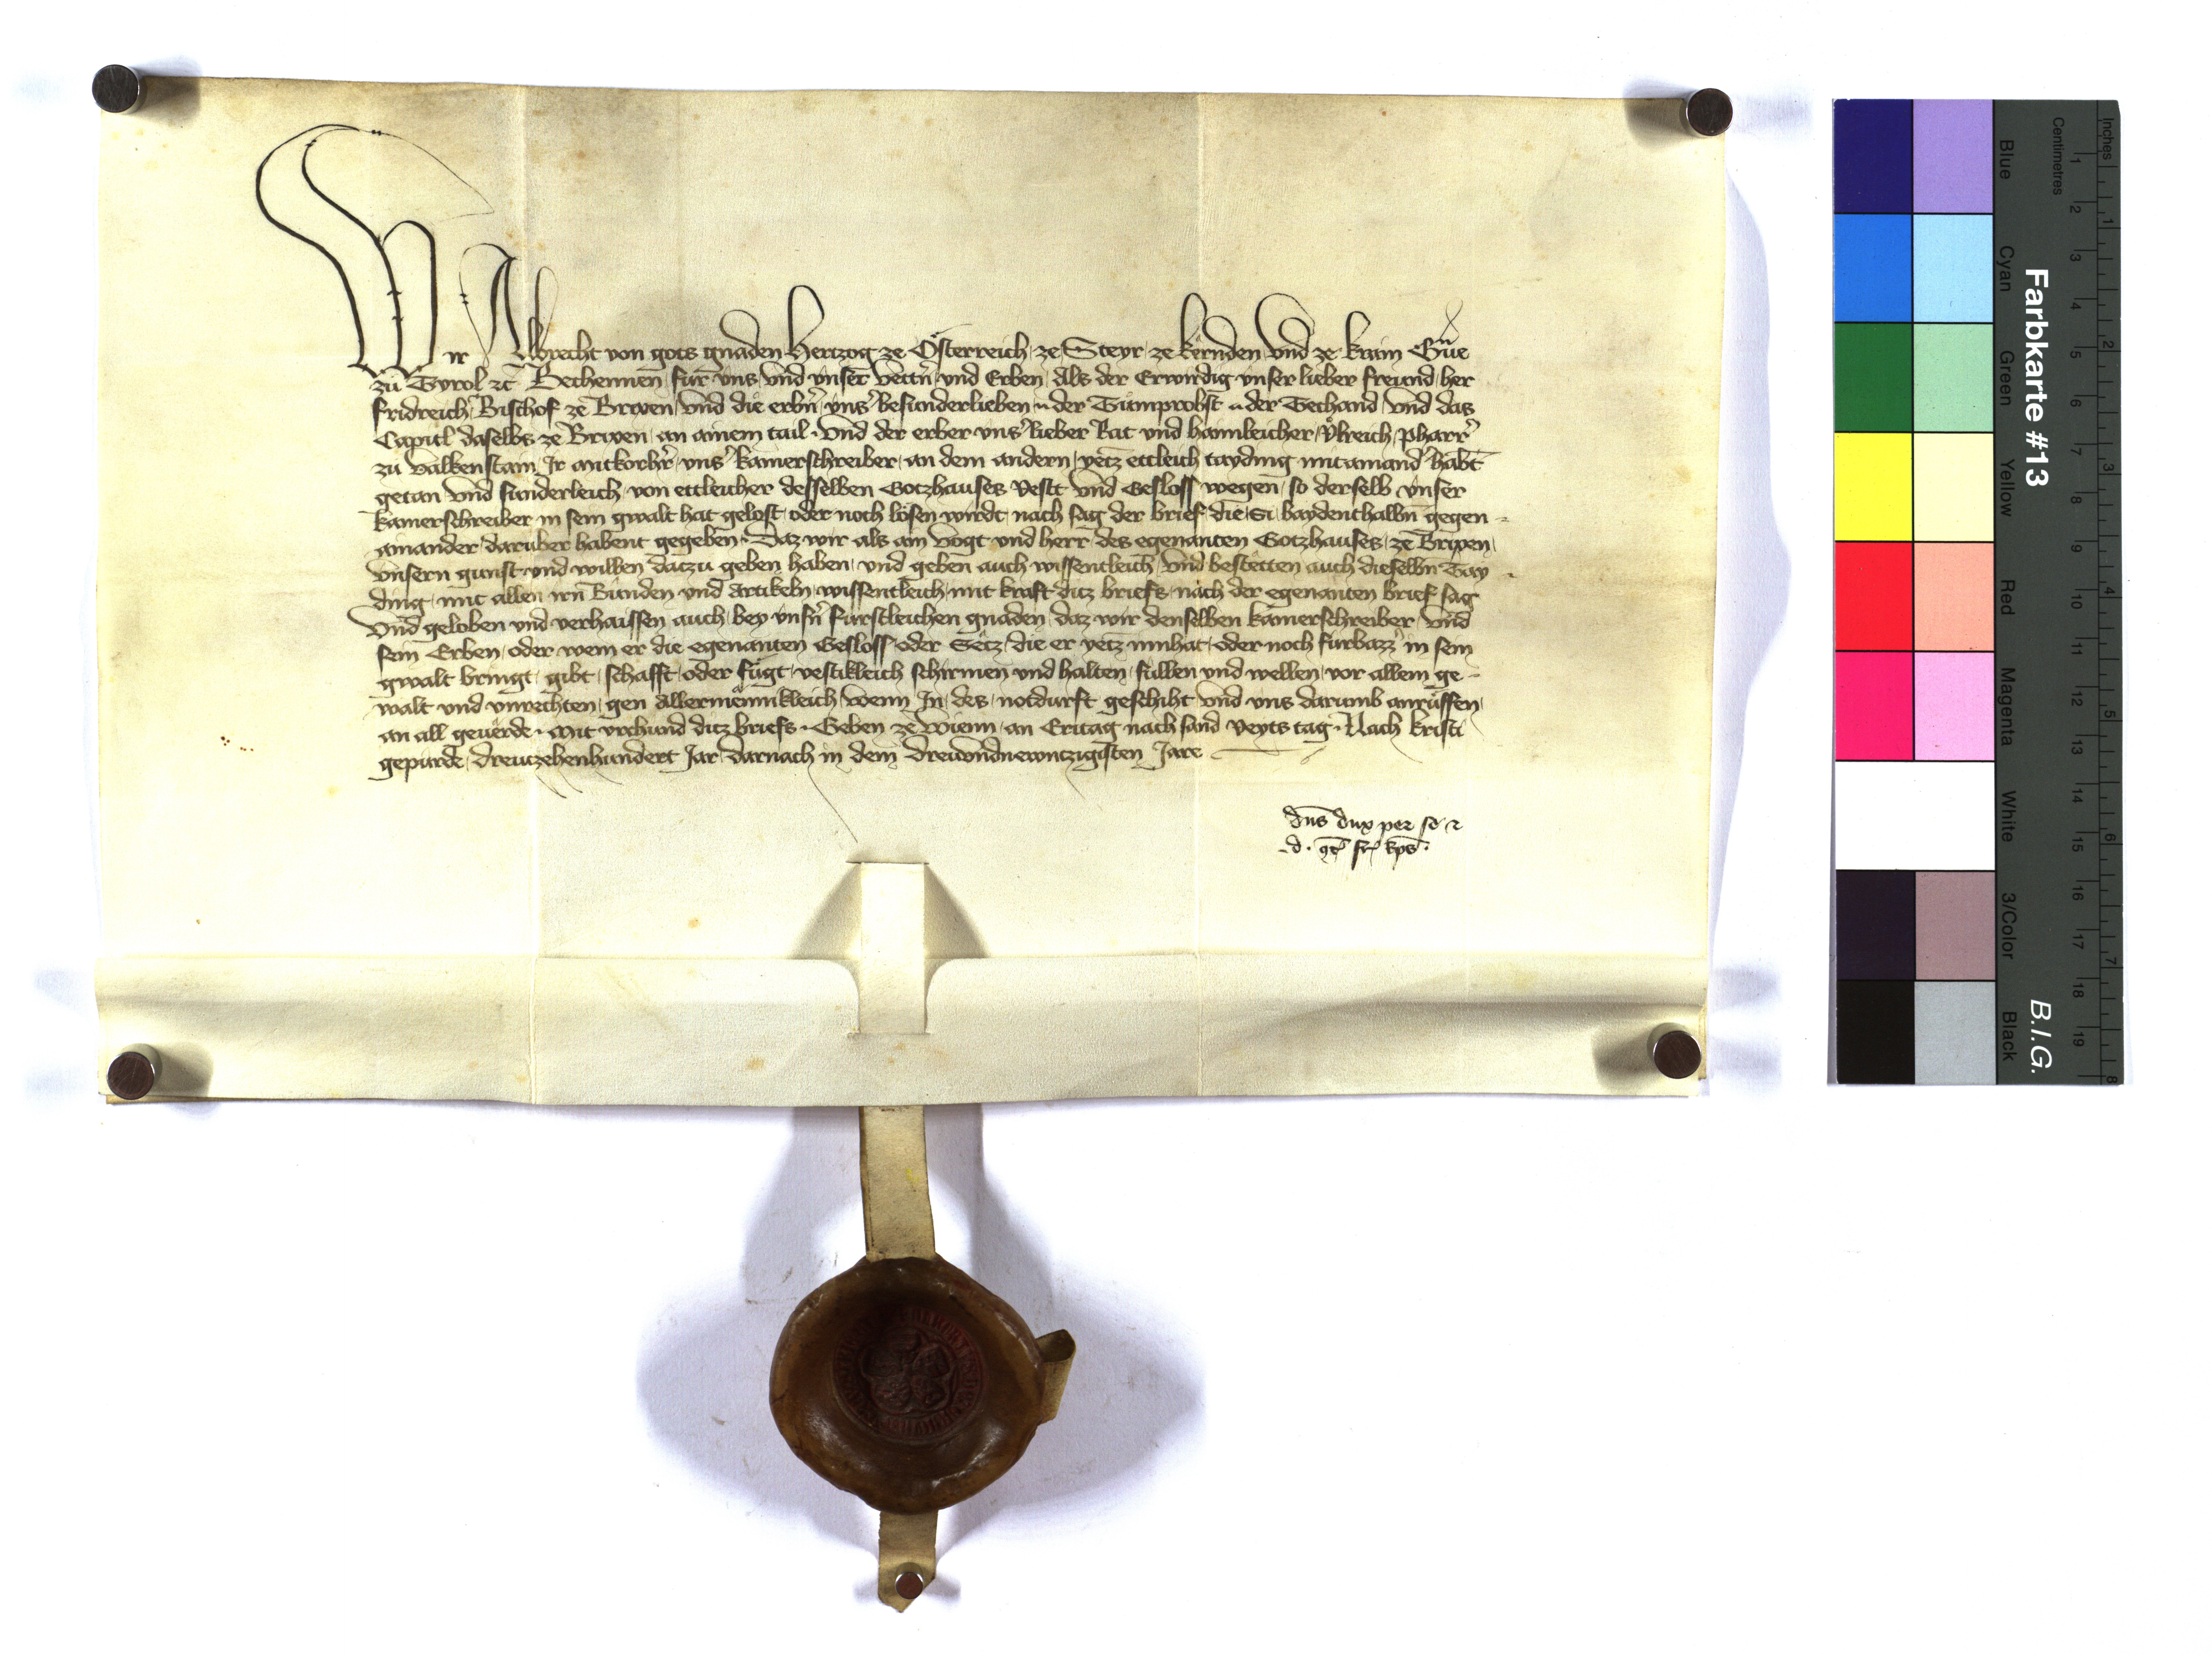 Wir Albrecht von gots gnaden Hertzog ze Österreich ze Steyr ze kernden Vnd ze krain Gue
zu Tyrol zc Bechennen für vns vnd vnser vettn vnd Erben Als der Erwirdig vnser lieber freund her
fridreich Bischof ze Brixen vnd die erbn vns besunderlieben n der Tumprobst n der Techand vnd das
Capitl daselbs ze Brixen an ainem tail Vnd der erber vns lieber Rat vnd Vlreich pharr
zu valkenstain vns kamerschreiber an dem andern yetz ettleich tayding mitainand habt
getan vnd sunderleich von ettleicher desselben Gotzhauses Vest vnd Gesloss wegen so derselb vnser
kamerschreiber in sein gwalt hat gelost oder noch lösen wirdt nach sag der brief die Si baydenthalbn gegen
ainander daruber habent gegeben Daz wir als ain Vogt vnd herr des egenanten Gotzhauses ze Brixen
Vnsern gunst vnd willen datzu geben haben vnd geben auch wissentleich vnd bestetten auch dieselbn Tay
ding mit allen irn Bunden vnd Artikeln wissentleich mit kraft ditz briefs nach der egenanten brief sag
Vnd geloben vnd verhaissen auch bey vnsn furstleichen gnaden daz wir denselben kamerschreiber vnd
sein Erben oder wem er die egenanten Gesloss oder Setz die er yetz innhat oder noch furbazz in sein
gwalt bringt gibt schafft oder fügt vestikleich schirmen vnd halten sullen vnd wellen vor allem ge
walt vnd vnrechten gen Allermenikleich wenn In des notdurft geschiht vnd vns darumb anruffen
an all geuerde Mit vrchund ditz briefs Geben ze Wienn an Eritag nach sand Veyts tag Nach kristi
gepurde dreutzehenhundert Jar darnach in dem dreivndnewntzigisten Jare
dns dux per se
Farbkarte #13
B.I.G.
Inches
Centimetres
1 2 3 4 5 6 7 8 9 10 11 12 13 14 15 16 17 18 19
1 2 3 4 5 6 7 8
Blue
Cyan
Green
Yellow
Red
Magenta
White
3/Color
Black